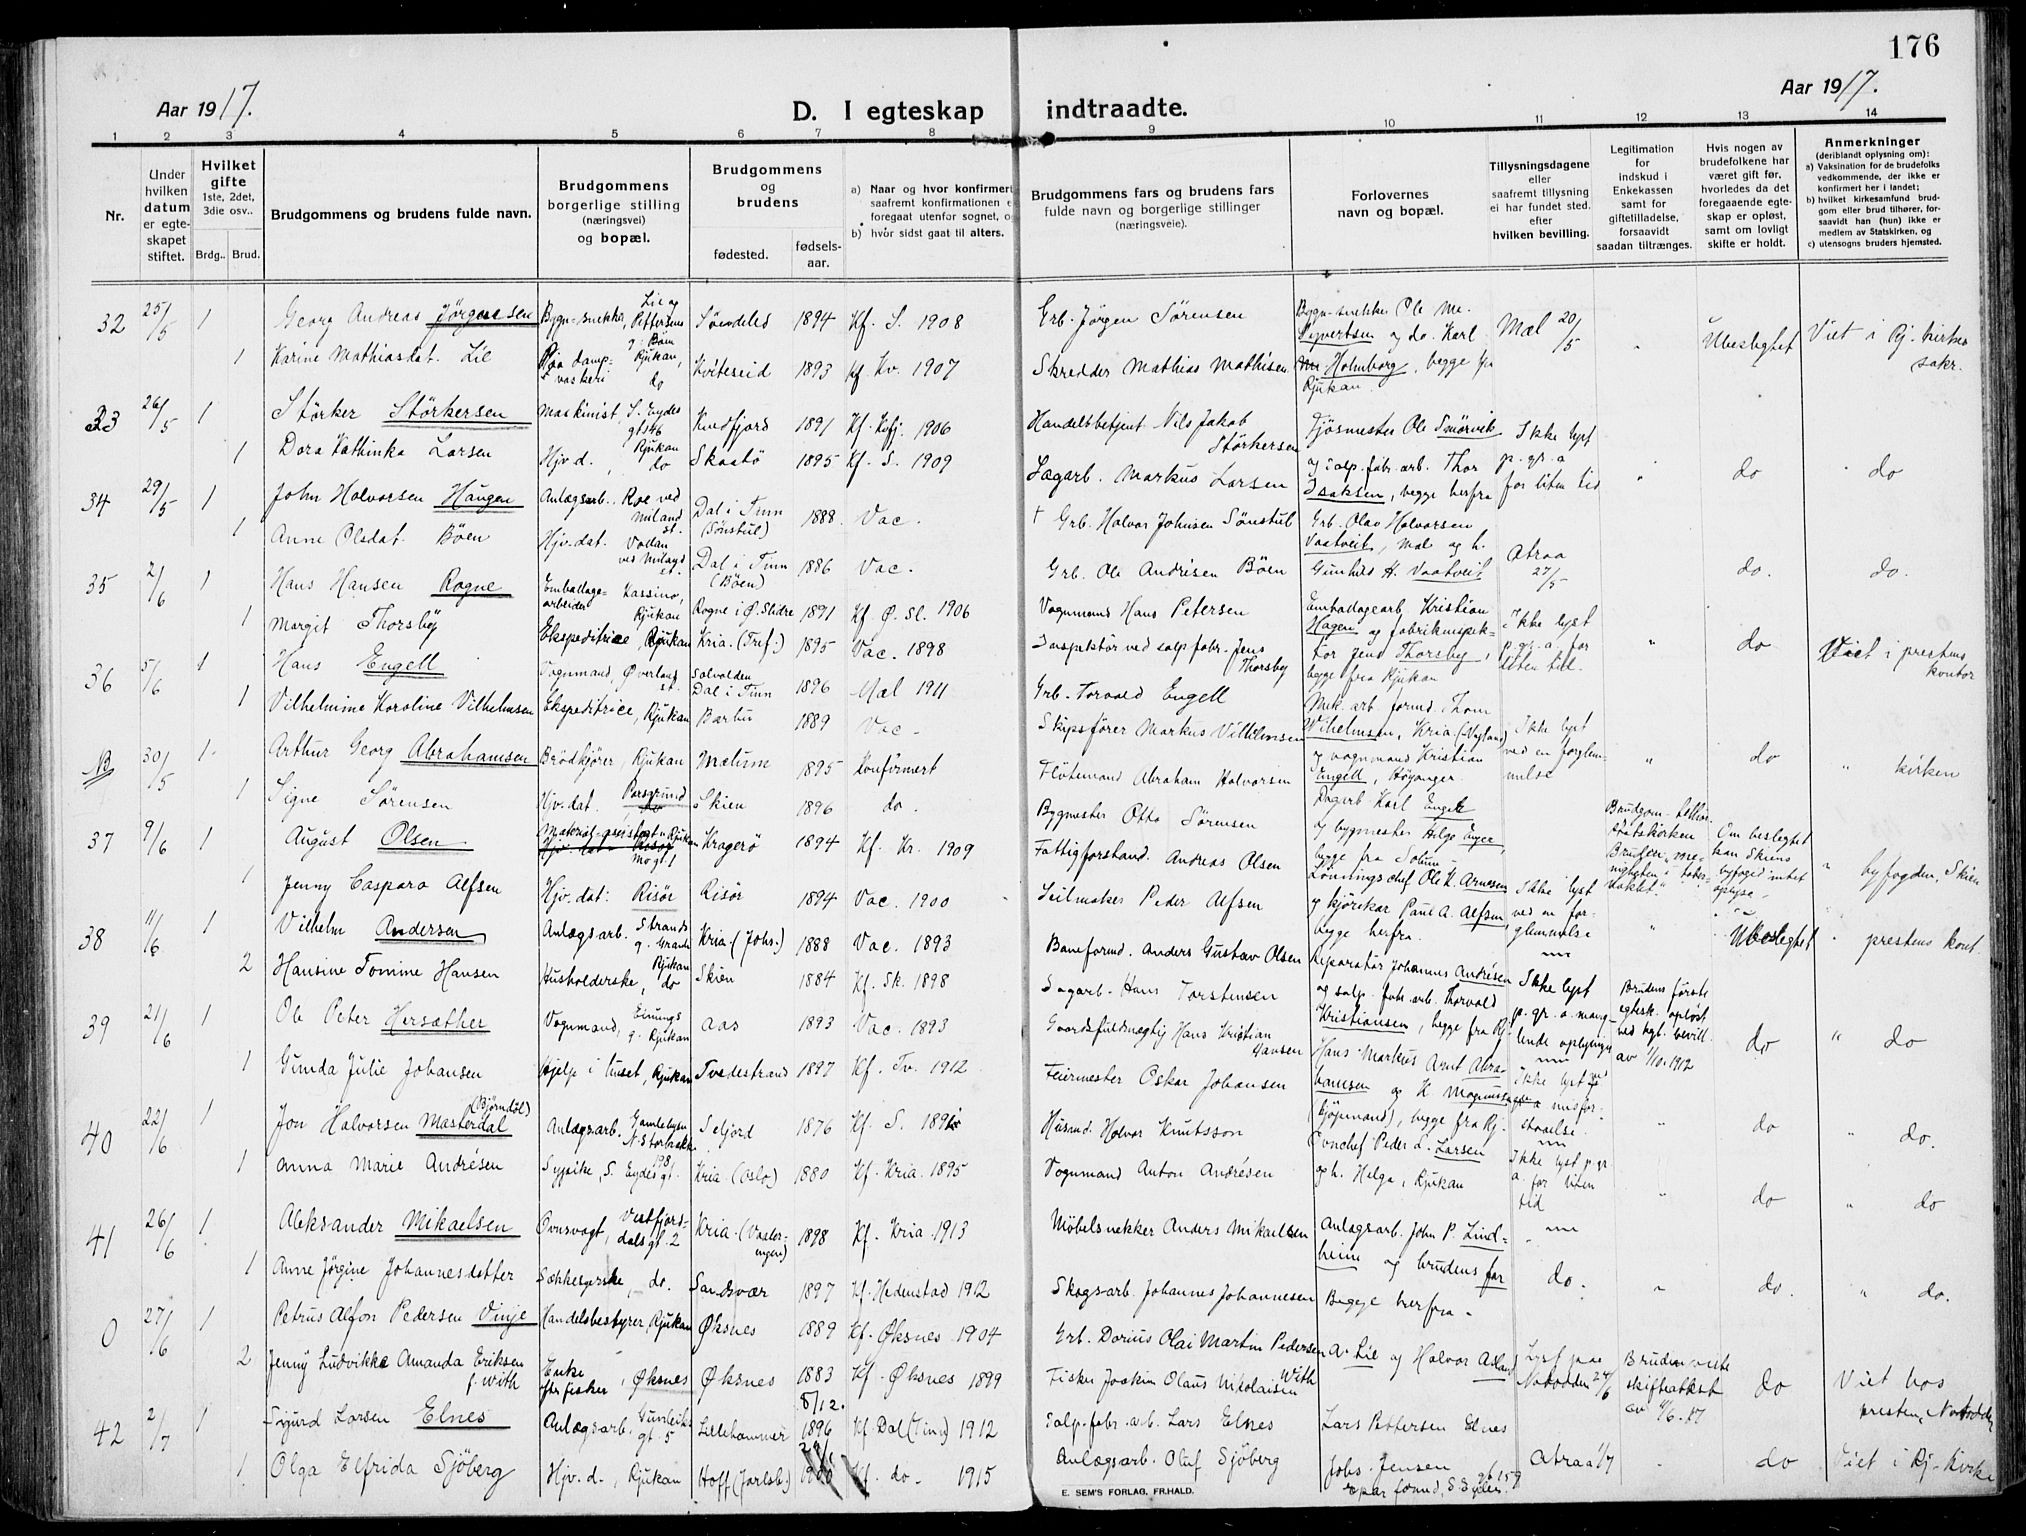 176
Aar 1917.
D. I egteskap indtraadte.
Aar 1917.
1 2 3 4 5 6 7 8 9 10 11 12 13 14
Nr.
Under hvilken datum er egte-skapet stiftet.
Hvilket gifte
1ste, 2det, 3die osv..
Brdg.. Brud.
Brudgommens og brudens fulde navn.
Brudgommens borgerlige stilling (næringsvei) og bopæl.
Brudgommens og brudens
fødested. fødsels-aar.
a) Naar og hvor konfirmert
saafremt konfirmationen e
foregaat utenfor sognet, og
b) hvor sidst gaat til alters.
Brudgommens fars og brudens fars
fulde navn og borgerlige stillinger
(næringsveie).
Forlovernes
navn og bopæl.
Tillysningsdagene
eller
saafremt tillysning
ei har fundet sted.
efter
hvilken bevilling.
Legitimation
for
indskud i
Enkekassen
samt for
giftetilladelse,
forsaavidt
saadan tiltrænges.
Hvis nogen av
brudefolkene har
været gift før,
hvorledes da det
foregaaende egte-
skap er opløst,
samt om lovligt
skifte er holdt.
Anmerkninger
(deriblandt oplysning om):
a) Vaksination for de brudefolks
vedkommende, der ikke er
konfirmert her i landet;
b) hvilket kirkesamfund brud-
gom eller brud tilhører, for-
saavidt han (hun) ikke er
medlem av Statskirken, og
c) utensogns bruders hjemsted.
32 25/5 1 Georg Andreas Jörgensen Bygn-snekker, Lie og Pettersens g. Böen Söndeled 1894 Kf. S. 1908 Grb. Jörgen Sörensen Mæl 20/5 " Ubeslegtet Viet i Rj. kirkes sakr.
1 Karine Mathiasdat. Lie damp-vaskeri Rjukan, do Kviteseid 1893 Kf. Kv. 1907 Skredder Mathias Mathisen Holmborg, begge fra Rjukan.
33 26/5 1 Störker Störkersen Maskinist, S. Eydes gt 46 1891 Kf. 1906 Handelsbetjent Nils Jakob Störkersen Ole Smörvik Ikke lyst
1 Dora Kathinka Larsen Hjv.d., Rjukan do Skaatö 1895 Kf. S. 1909 Sagarb. Markus Larsen og salp.fabr.arb. Thor Isaksen, begge herfra p. gr. a for liten tid " do " do
34 29/5 1 John Halvorsen Haugen Anlægsarb. Roe ved Miland st. Dal i Tinn (Sönstul) 1888 Vac. † Grb. Halvor Johnsen Sönstul Grb. Olav Halvorsen Vaatveit, Mæl og h.
1 Anne Olsdat. Böen Hjv.dat. ved Miland st. Dal i Tinn (Böen) 1886 Vac. Grb. Ole Andrésen Böen Gunhild H. Vaatveit Atraa 27/5 do. do.
35 2/6 1 Hans Hansen Rogne Emballage-arbeider Kassino, Rjukan Rogne i Ö. Slidre 1891 Kf. Ö. Sl. 1906 Vognmand Hans Petersen Emballagearb. Kristian Hagen og fabrikinspek- Ikke lyst
1 Margit Thorsby Ekspeditrice, Rjukan Kria. (Tref.) 1895 Vac. 1898 Inspektör ved salp.fabr. Jens Thorsby tör Jens Thorsby, begge fra Rjukan p. gr. a. for liten tid. " do Viet i prestens kontor
36 5/6 1 Hans Engell Vognmand, Överland st. Dal i Tinn 1896 Mæl 1911 Grb. Torvald Engell Mek. arb. formd. Thom
1 Vilhelmine Karoline Vilhelmsen Ekspeditrice, Rjukan Bardu 1889 Vac. Skipsförer Markus Vilhelmsen Wilhelmsen, Kria. og vognmand Kristian Engell, Höyanger. Ikke lyst ved en forglem-melse " do " kirken
NB 30/5 1 Arthur Georg Abrahamsen Brödkjörer, Rjukan Mælum 1895 Konfirmert Flötemand Abraham Halvorsen Dagarb. Karl Engell
1 Signe Sörensen Hjv.dat. Porsgrund Skien 1896 do. Bygmester Otto Sörensen og bygmester Helge begge fra Solum
37 9/6 1 August Olsen Rjukan Mo gt 1 Kragerö 1894 Kf. Kr. 1909 Fattigforstand. Andreas Olsen Lönningschef Ole K. Arnesen Om beslegtet kan Skiens byfoged intet oplyse. " byfogden, Skien
1 Jenny Caspara Alfsen Hjv.dat: Risör Risör 1894 Vac. 1900 Seilmaker Peder Alfsen og kjörekar Paul A. Alfsen, begge herfra. Ikke lyst ved en for-glemmelse " Ubeslegtet " prestens kont.
38 11/6 1 Vilhelm Andersen Anlægsarb. Strands g. Kria. (Johs.) 1888 Vac. 1893 Baneformd. Anders Gustav Olsen Reparatör Johannes Andrésen Ikke lyst Brudens förste
2 Hansine Tomine Hansen Husholderske, Rjukan do Skien 1884 Kf. Sk. 1898 Sagarb. Hans Torstensen og salp. fabr. arb. Thorvald Kristiansen, begge fra Rj. p. gr. a. mang-lende oplysning egtesk. oplöst ved kgl. bevill. av 1/10.1912 do " do
39 21/6 1 Ole Peter Hersæther Vognmand, Einungs g. Rjukan Aas 1893 Vac. 1893 Gaardsfuldmægtig Hans Kristian Hansen Hans Markus Arnt Abra-
1 Gunda Julie Johansen Hjelp i huset, Rjukan Tvedestrand 1897 Kf. Tv. 1912 Feiermester Oskar Johansen hamsen og K. Magnussen (kjöpmand), begge fra Rj. Ikke lyst misfor-staaelse. " do " do.
40 22/6 1 Jon Halvorsen Masterdal (Björndöl) Anlægsarb. Gamlebyen N. Storbakk Seljord 1876 Kf. S. Husmd. Halvor Knutsson Ovnchef Peder L. Larsen
1 Anna Marie Andrésen Sypike, S. Eydes gt. 98 Kria. (Oslo) 1880 Kf. Kria. 1895 Vognmand Anton Andrésen og h. Helga, Rjukan Ikke lyst p. gr. a. for liten tid " do " do
41 26/6 1 Aleksander Mikaelsen Ovnsvagt, Vestfjord-dals gt. 2 Kria. (Vaaler-engen) 1898 Kf. Kria. 1913 Möbelsnekker Anders Mikaelsen Anlægsarb. John P. Lind-heim og brudens far
1 Anne Jörgine Johannesdotter Sækkesyerske, do. Sandsvær 1897 Kf. Hedenstad 1912 Skogsarb. Johannes Johannesen Begge herfra. do. " do. " do.
0 27/6 1 Petrus Alfon Pedersen Vinje Handelsbestyrer, Rjukan Øksnes 1889 Kf. Øksnes 1904 Grb. Dorius Olai Martin Pedersen A. Lie og Halvor Lyst paa Notodden 24/6 Bruden viste skifteattest av 4/6.17 do Viet hos presten, Notodden
2 Jenny Ludvikke Amanda Eriksen f. With Enke efter fisker, Øksnes Øksnes 1883 Kf. Øksnes 1899 Fisker Joakim Olaus Nikolaisen With
42 2/7 1 Sigurd Larsen Elnes Anlægsarb. Gunleiks gt. 5 Lillehammer 8/12. 1896 Kf. Dal (Tinn) 1912 Salp.fabr.arb. Lars Elnes Lars Pettersen Elnes
1 Olga Elfrida Sjöberg Hjv.d., Rjukan Hoff (Jarlsb.) 1900 Kf. do. 1915 Anlægsarb. Oluf Sjöberg Johs. Jensen Atraa 1/7 " do Viet i Rj. Kirke
E. SEM'S FORLAG, FR.HALD.